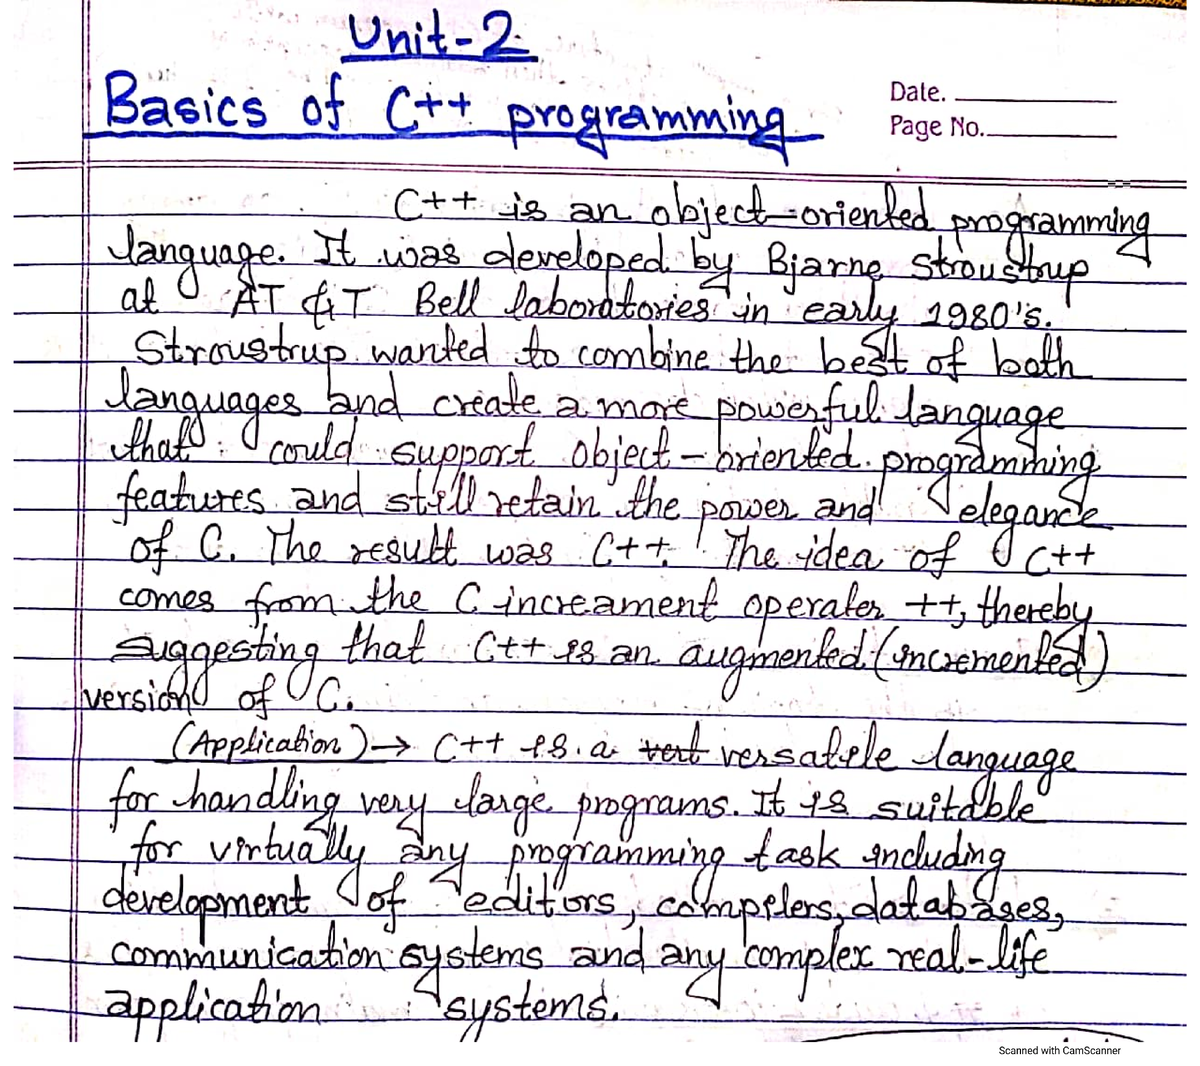 Unit-2
Basics of C++ programming
Date.
Page No.
C++ is an object-oriented programming
language. It was developed by Bjarne Stroustrup
at AT &T Bell laboratories in early 1980's.
Stroustrup wanted to combine the best of both
languages and create a more powerful language
that could support object-oriented programming
features and still retain the power and elegance
of C. The result was C++. The idea of C++
comes from the C increament operater ++, thereby
suggesting that C++ is an augmented (incremented)
version of C.
(Application) → C++ is a vert versatile language
for handling very large programs. It is suitable
for virtually any programming task including
development of editors, compilers, databases,
communication systems and any complex real-life
application systems.
Scanned with CamScanner